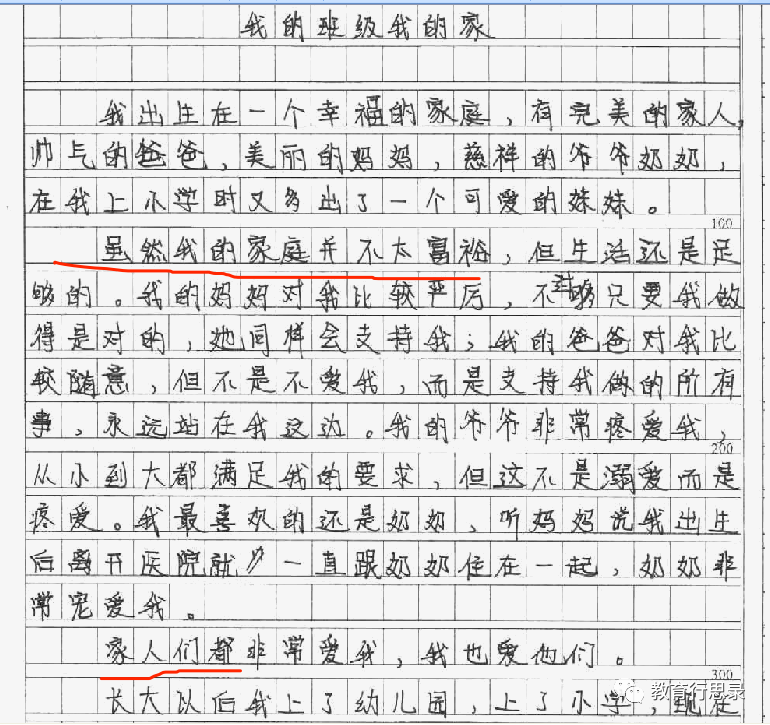 我的班级我的家
我出生在一个幸福的家庭，有完美的家人，
帅气的爸爸，美丽的妈妈，慈祥的爷爷奶奶，
在我上小学时又多出了一个可爱的妹妹。
100
虽然我的家庭并不太富裕，但生活还是足
够的。我的妈妈对我比较严厉，不过只要我做
得是对的，她同样会支持我；我的爸爸对我比
较随意，但不是不爱我，而是支持我做的所有
事，永远站在我这边。我的爷爷非常疼爱我，
200
从小到大都满足我的要求，但这不是溺爱而是
疼爱。我最喜欢的还是奶奶，听妈妈说我出生
后离开医院就一直跟奶奶住在一起，奶奶非
常宠爱我。
家人们都非常爱我，我也爱他们。
300
长大以后我上了幼儿园，上了小学，现在
教育行思录